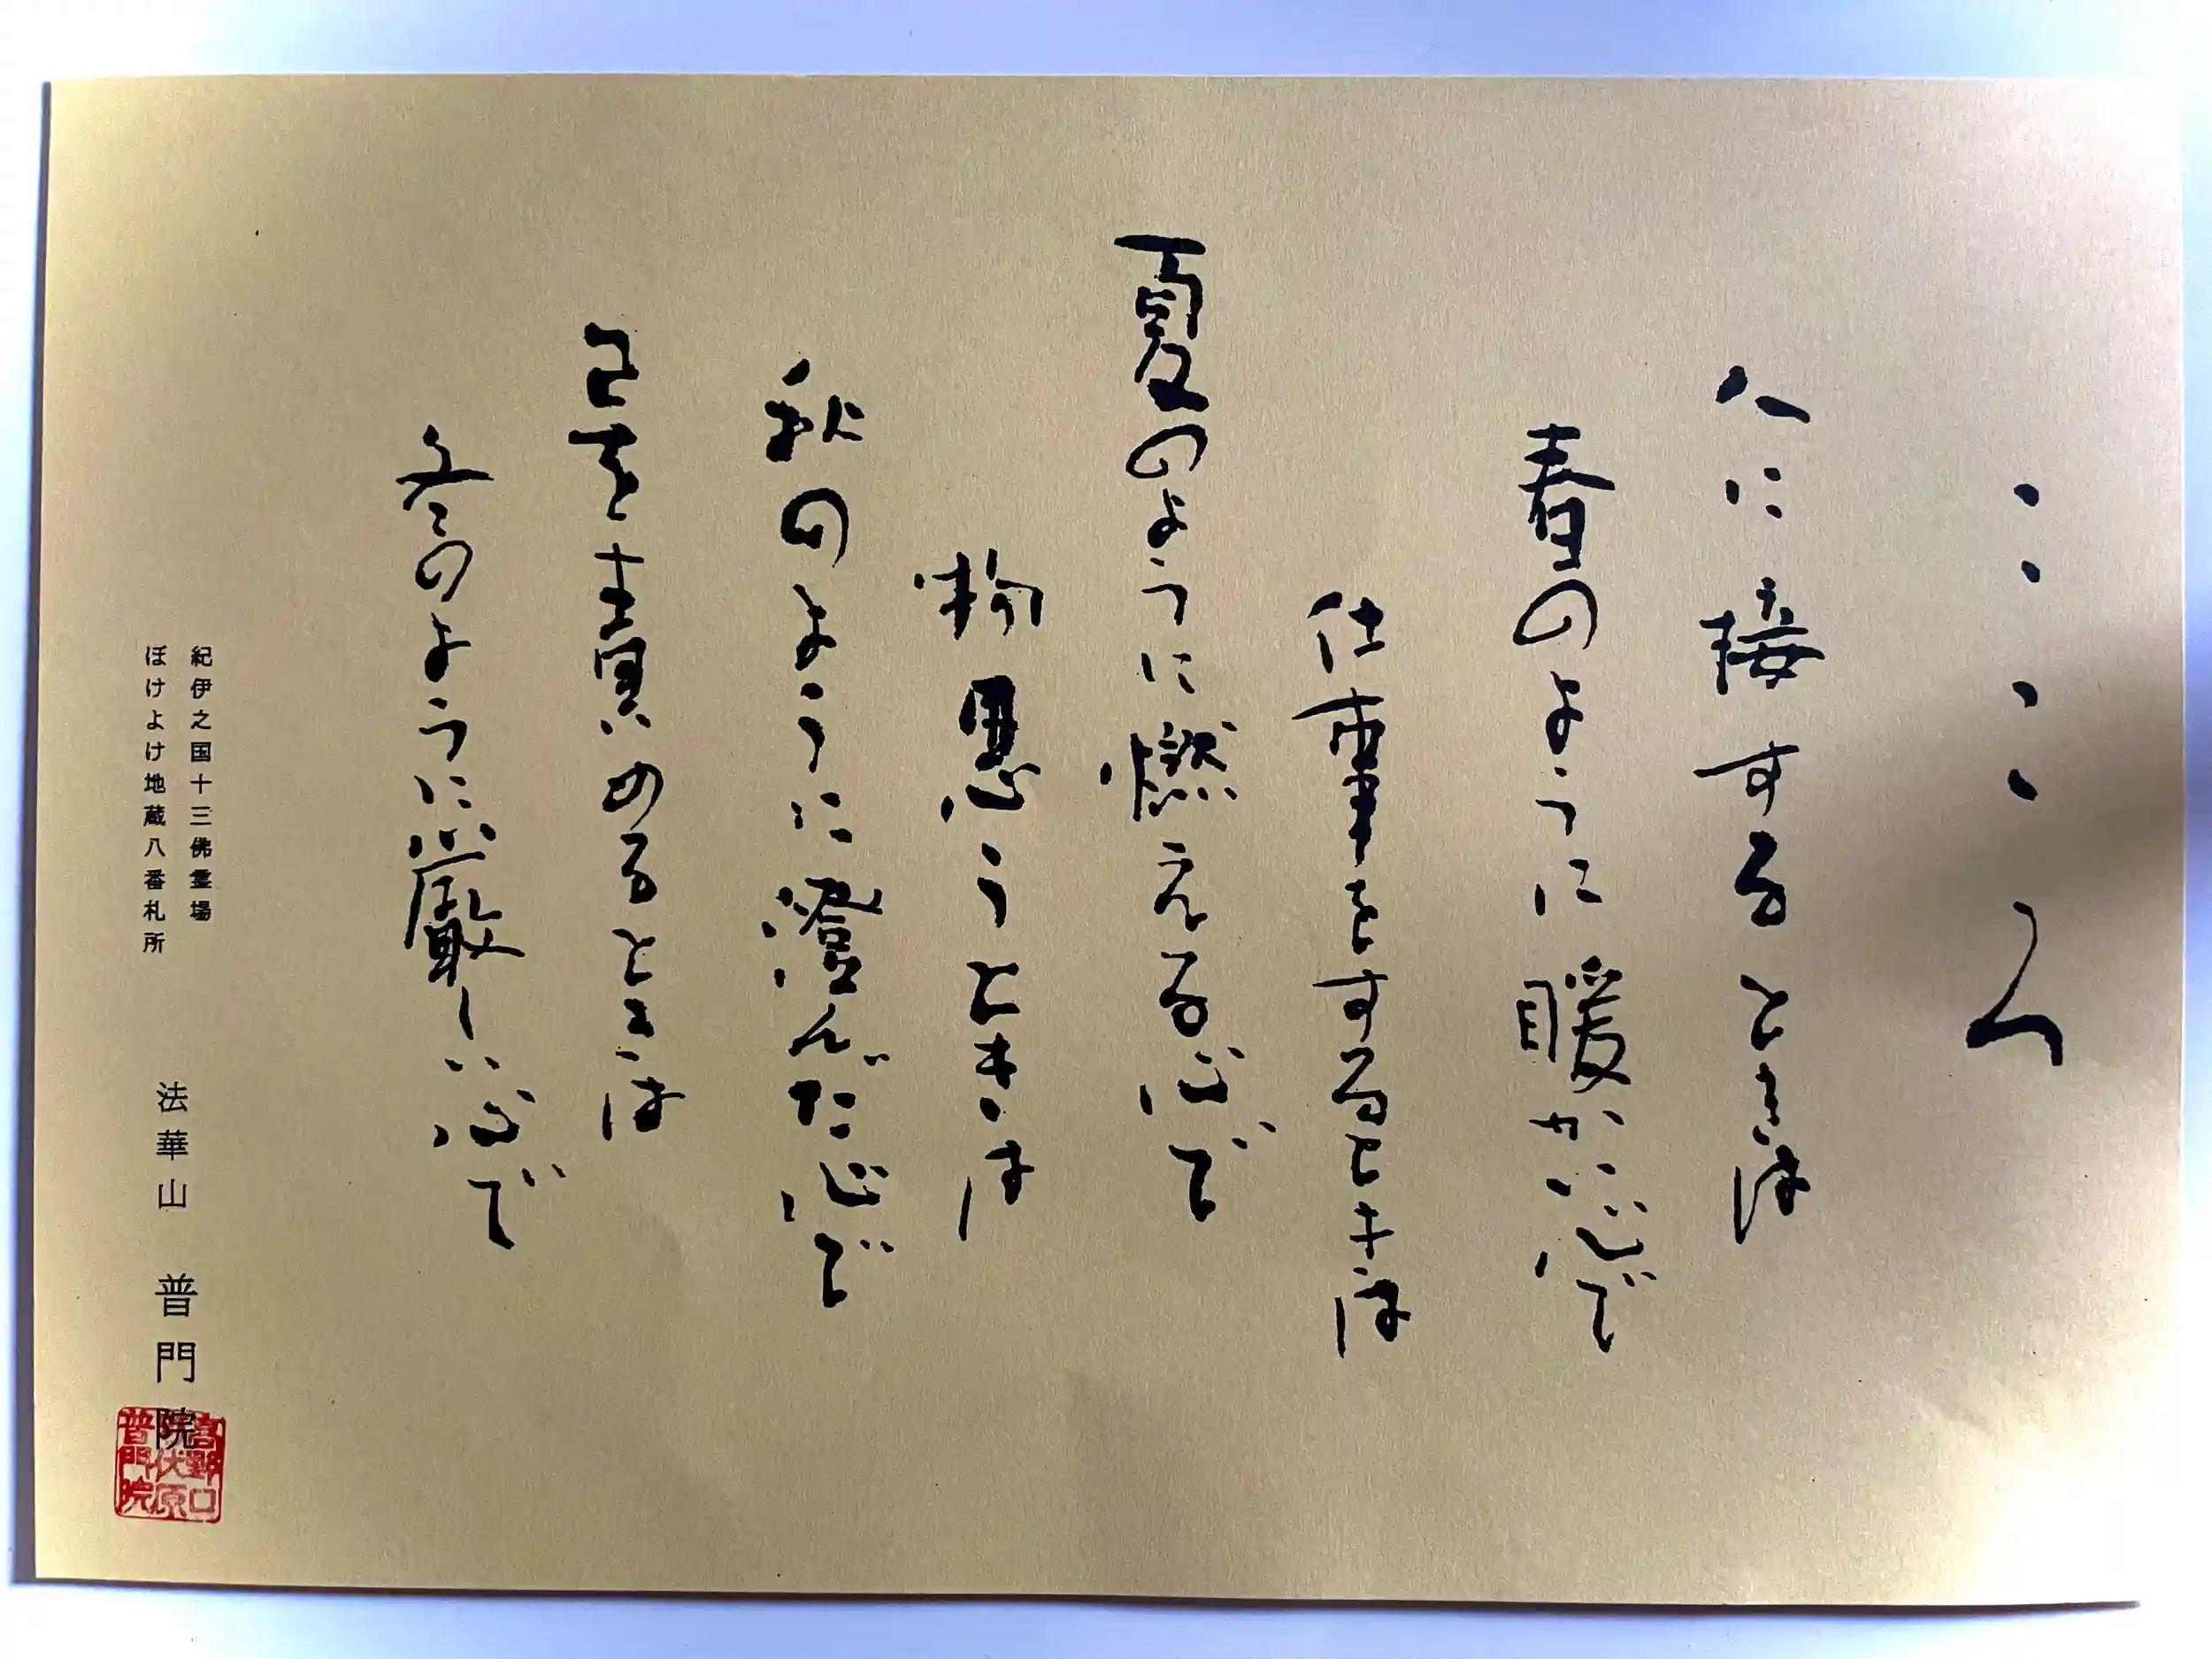 こころ
人に接するときは
春のように暖かい心で
仕事をするときは
夏のように燃える心で
物思うときは
秋のように澄んだ心で
己を責めるときは
冬のように厳しい心で
紀伊之国十三佛霊場
ぼけよけ地蔵八番札所
法華山 普門院
高野口
伏原
普門院